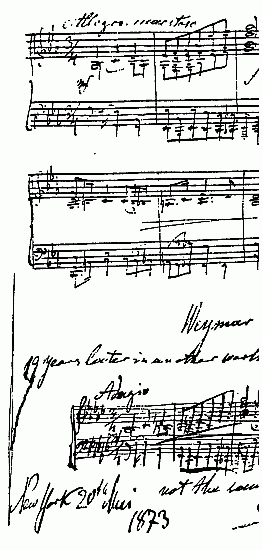 Allegro maestoso
mf
Weymar
19 years later in another work
Adagio
New York 20th Mai not the same
1873